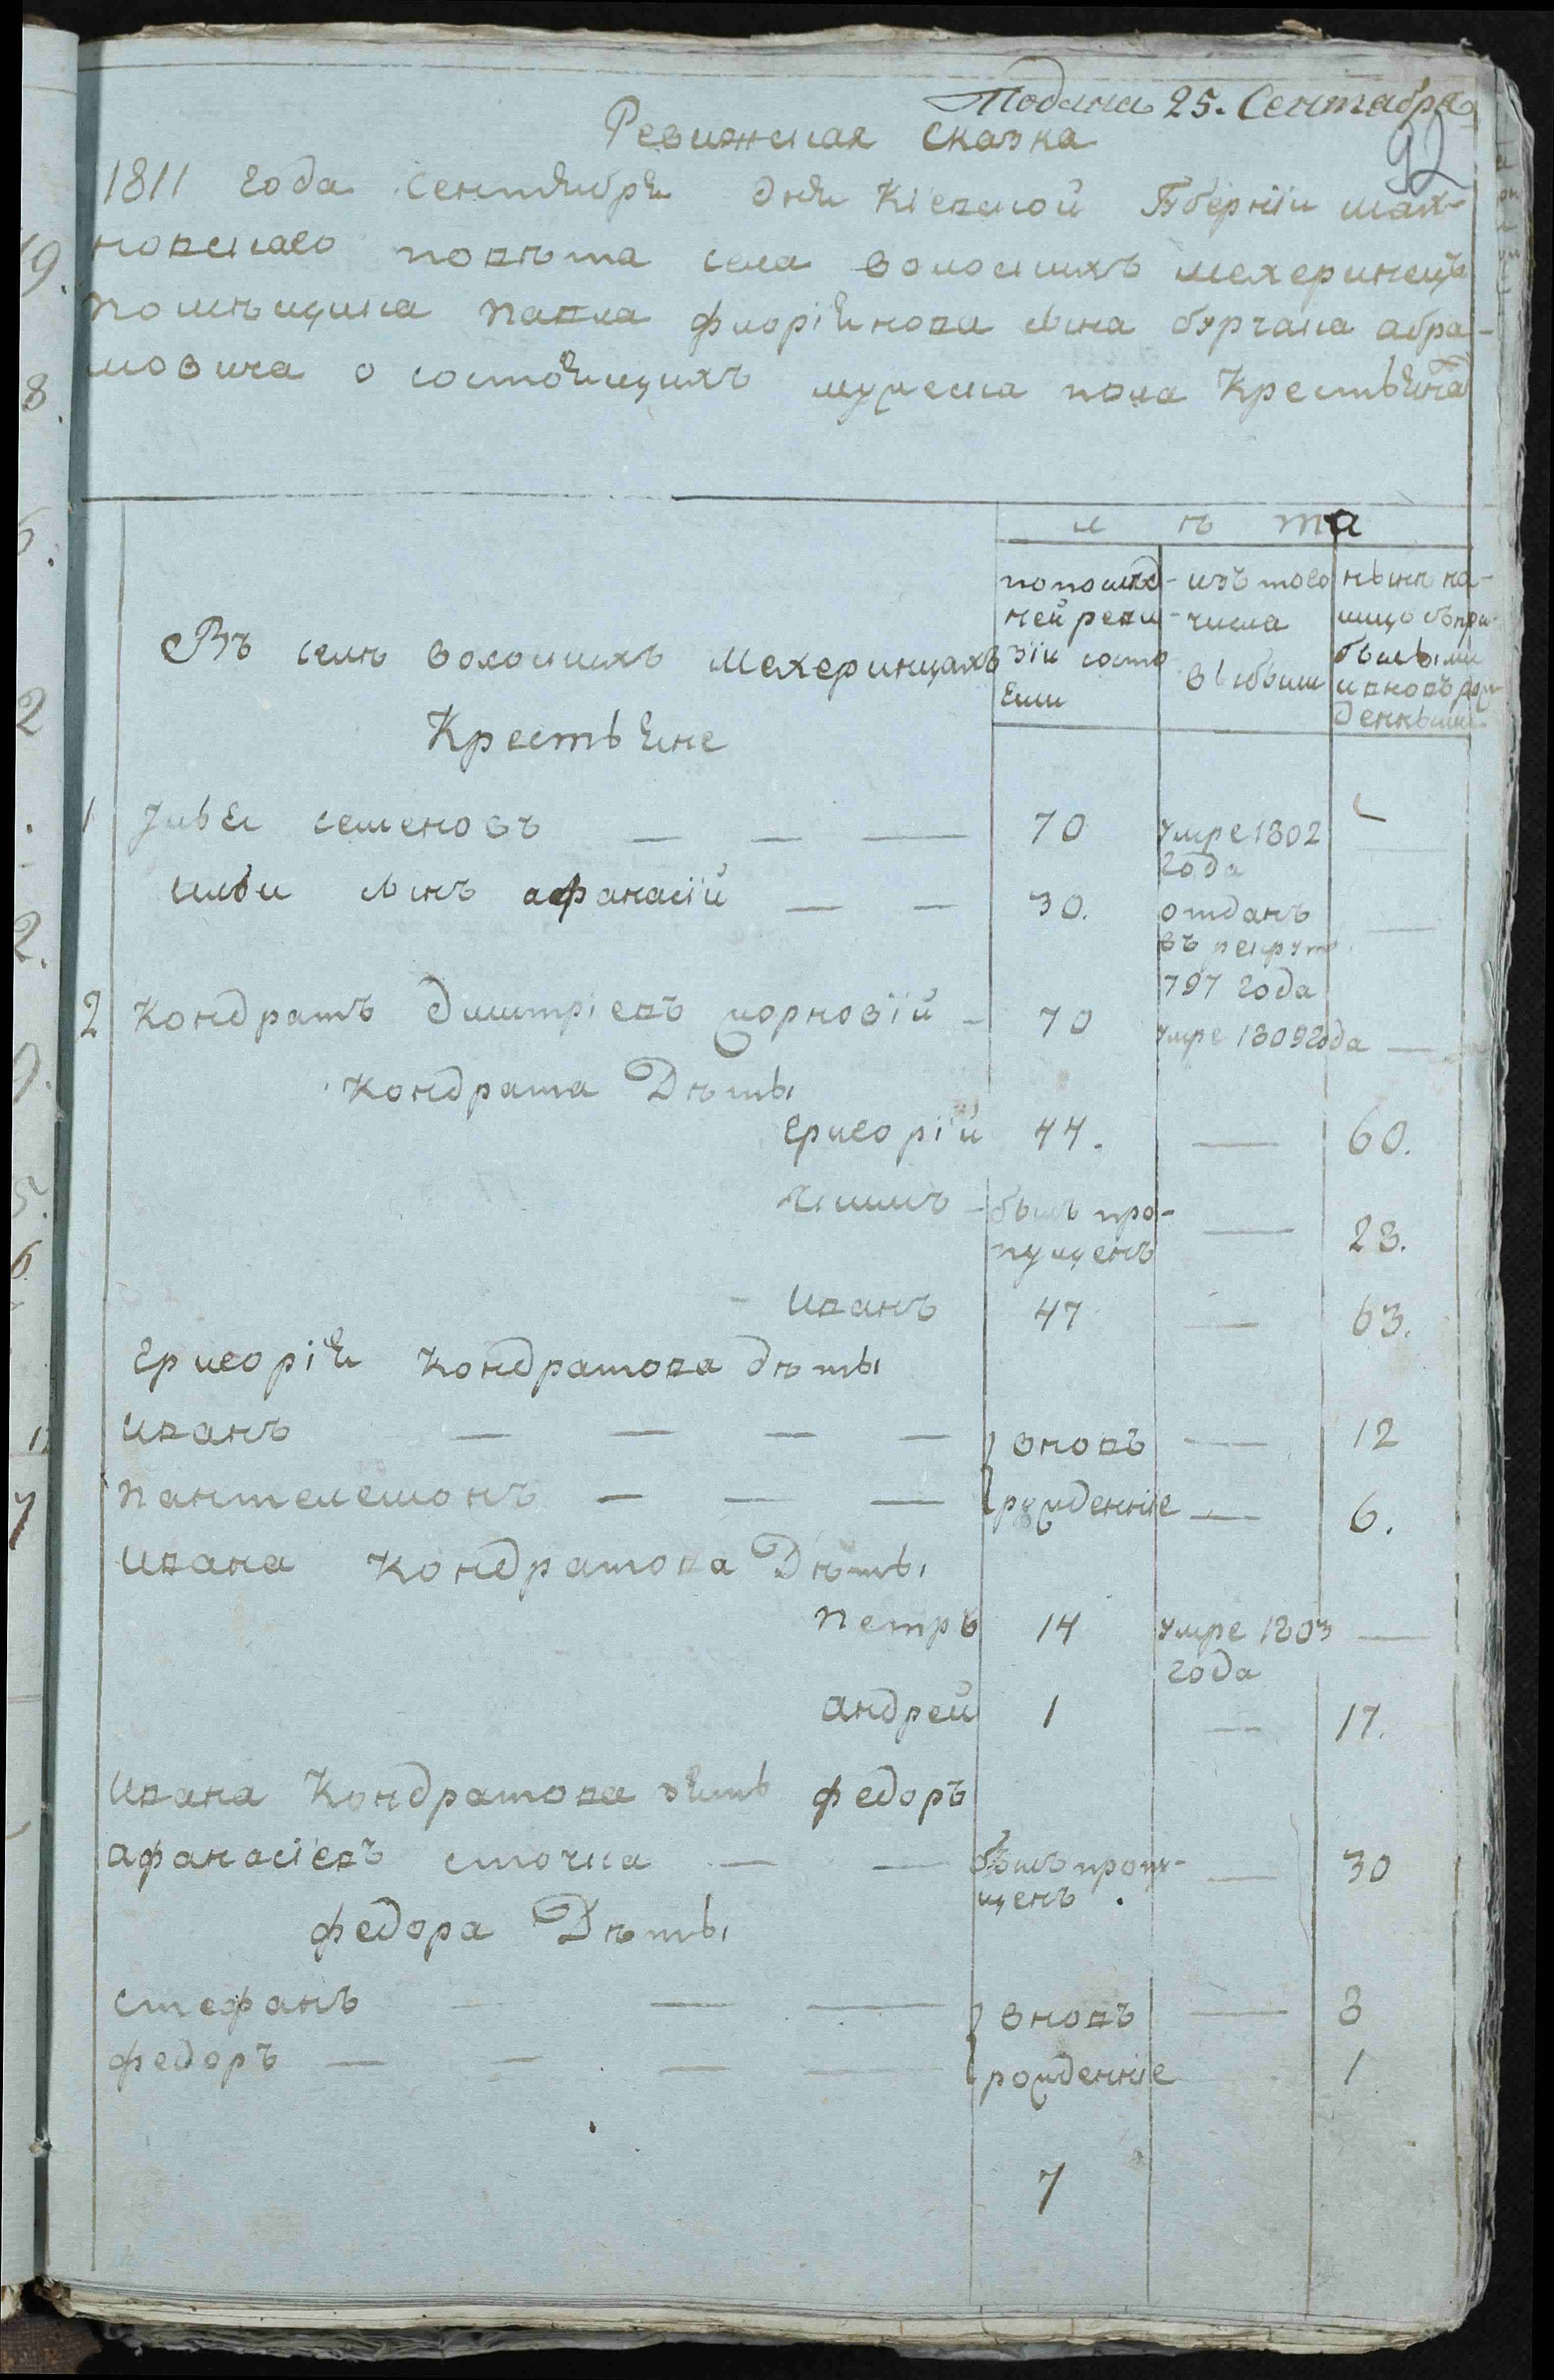 Подана 25. Сентабра
92
Ревижская Сказка
1811 года сентября дня Кіевской Губерніи мах-
новскаго повѣта села волоскихъ мехеринецъ
помѣщика павла флоріянова сына бурчака абра-
мовича о состоящихъ мужеска пола Крестьянѣ
лѣта
попослѣд- изъ того нынѣ на-
ней реви- числа лицо съ при-
зіи состо выбыли былыми
яли ивновь рож
денными
Въ селѣ волоскихъ Мехеринцахъ
Крестьяне
1 Илья семеновъ — — — 70 умре 1802 —
года
ильи сынъ афанасій — — 30. отданъ —
въ рекруты
797 года
2 Кондратъ дмитріевъ жорновій — 70 умре 1809 года —
Кондрата Дѣты
григорій 44. — 60.
Якимъ - былъ про- — 23.
пущенъ
иванъ 47 — 63.
григорія Кондратова дѣты
иванъ — — — — вновь — 12
пантелемонъ — — — рожденніе — 6.
ивана Кондратова Дѣты
петръ 14 умре 1803 —
года
андрей 1 — 17.
ивана Кондратова зять федоръ
афанасіевъ сточка — — былъ пропу- — 30
щенъ.
федора Дѣты
стефанъ — — — вновь — 8
федоръ — — — — рожденніе 1
7